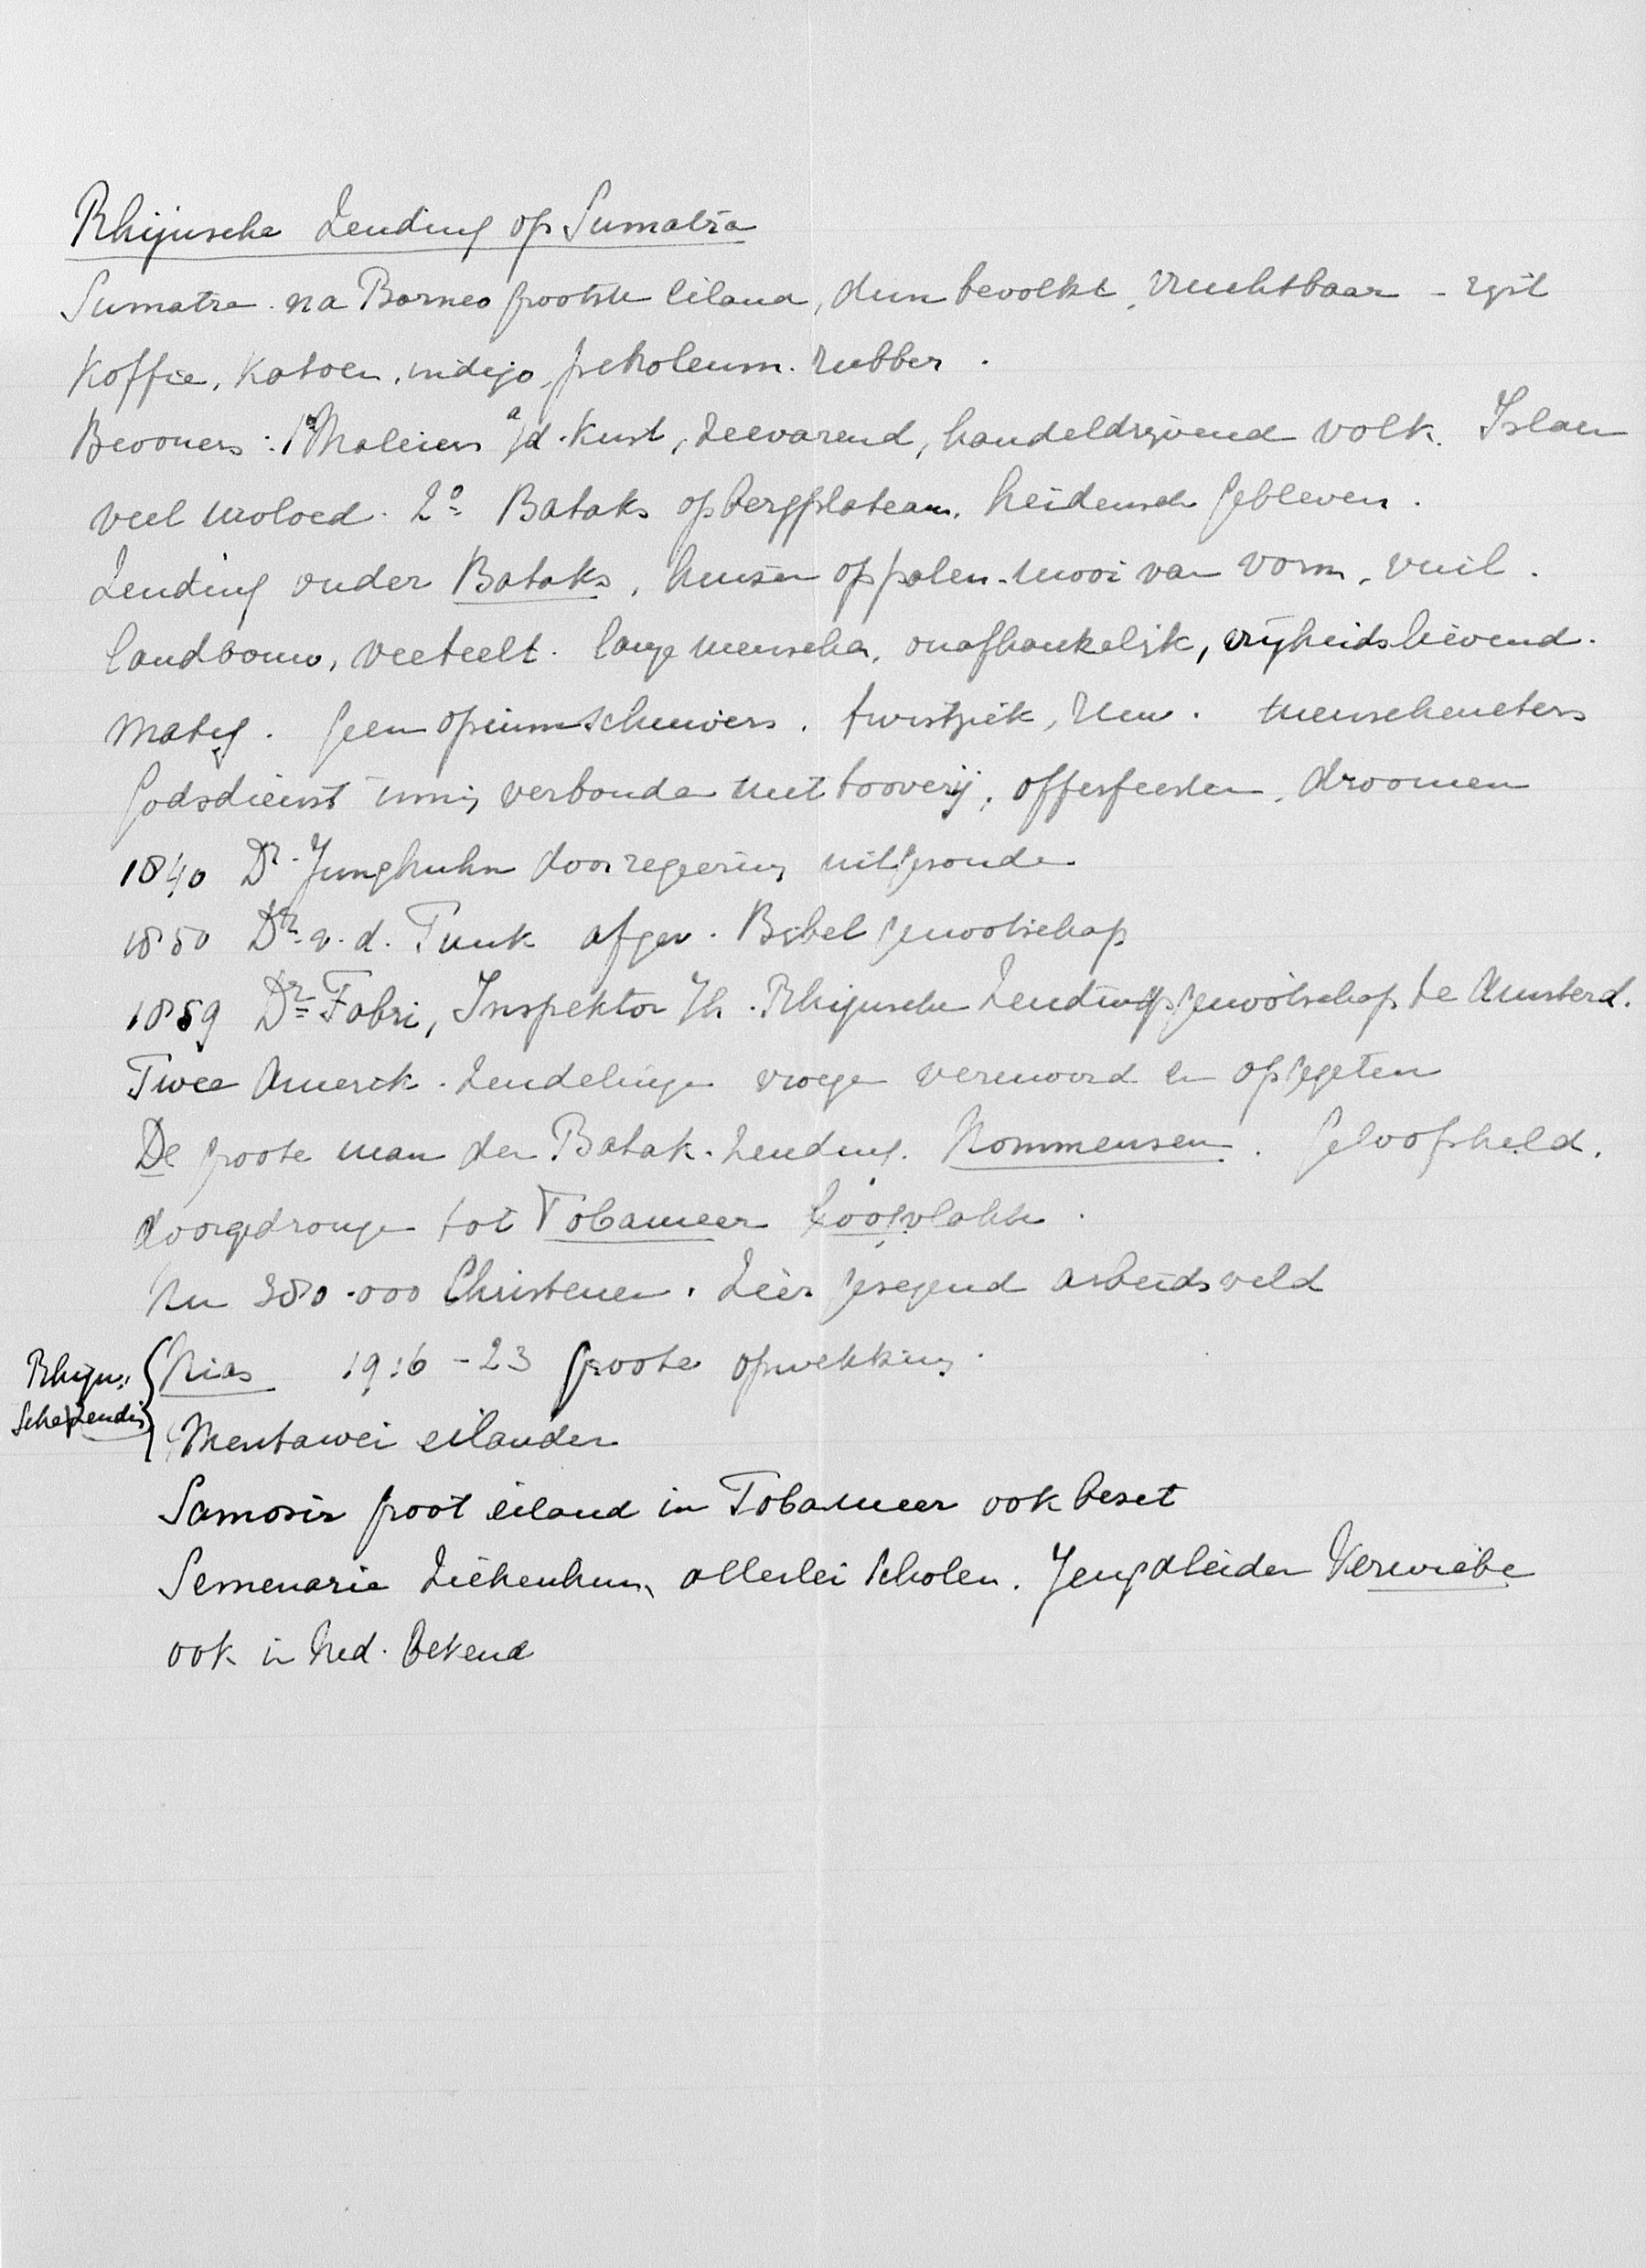 Rhijnsche Zending op Sumatra
Sumatra na Borneo grootste eiland, dun bevolkt, vruchtbaar - rijst
koffie, katoen, indigo, petroleum. rubber.
Bewoners: 1º Maleiers a/d kust, zeevarend, handeldrijvend volk. Islam
veel invloed. 2º Bataks op bergplateau, heidensch gebleven.
Zending onder Bataks, huizen op palen - mooi van vorm, vuil.
landbouw, veeteelt. lange menschen, onafhankelijk, vrijheidslievend.
matig. geen opiumschuivers. twistziek, ruw. menscheneters
Godsdienst innig verbonden met tooverij, offerfeesten, droomen
1840 Dr. Junghuhn door regeering uitgezonden
1850 Dr. v. d. Tuuk afgev. Bijbelgenootschap
1859 Dr. Fabri, Inspektor Rhijnsche Zendingsgenootschap te Amsterd.
Twee Amerik. Zendelingen vroeger vermoord en opgegeten
De groote man der Batak-zending. Nommensen. Geloofsheld.
doorgedrongen tot Tobameer hoogvlakte.
Nu 380.000 Christenen. Zeer gezegend arbeidsveld
Rhijn: Nias 1916-23 groote opwekking.
Sche Zending Mentawei eilanden
Samosir groot eiland in Tobameer ook bezet
Semenarie Ziekenhuis, allerlei Scholen. Jeugdleider Verwiebe
ook in Ned. bekend